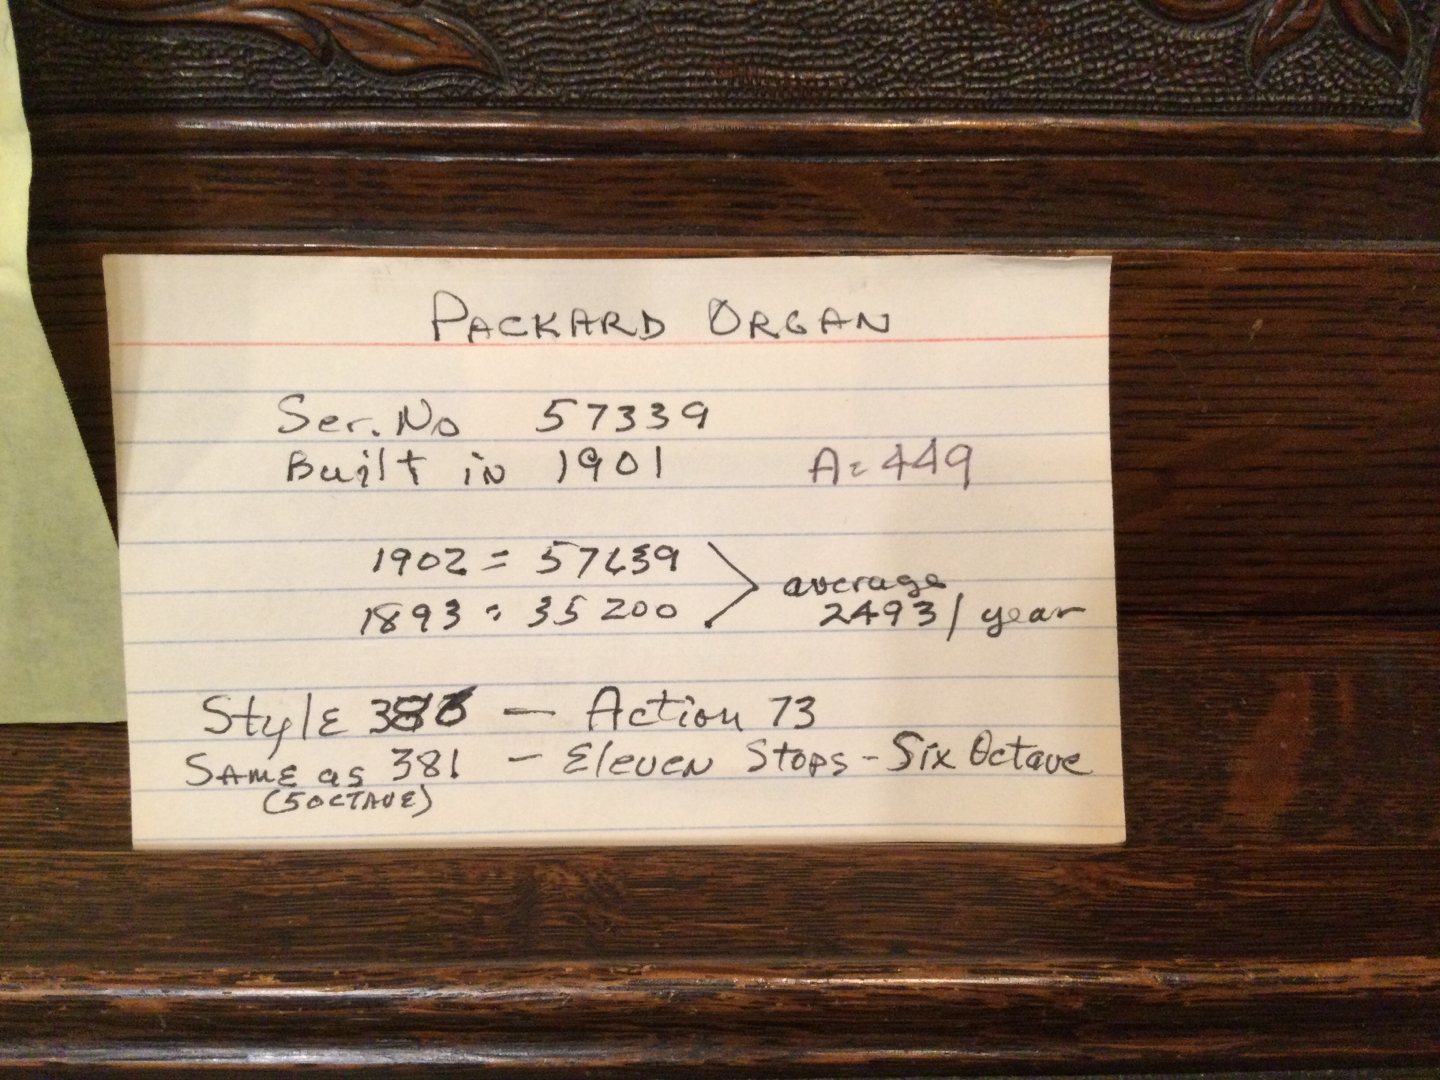 PACKARD ORGAN
Ser. No 57339
Built in 1901 A= 449
1902 = 57639
1893 = 35200
average
2493/year
Style — Action 73
SAME as 381 — Eleven Stops - Six Octave
(5 OCTAVE)